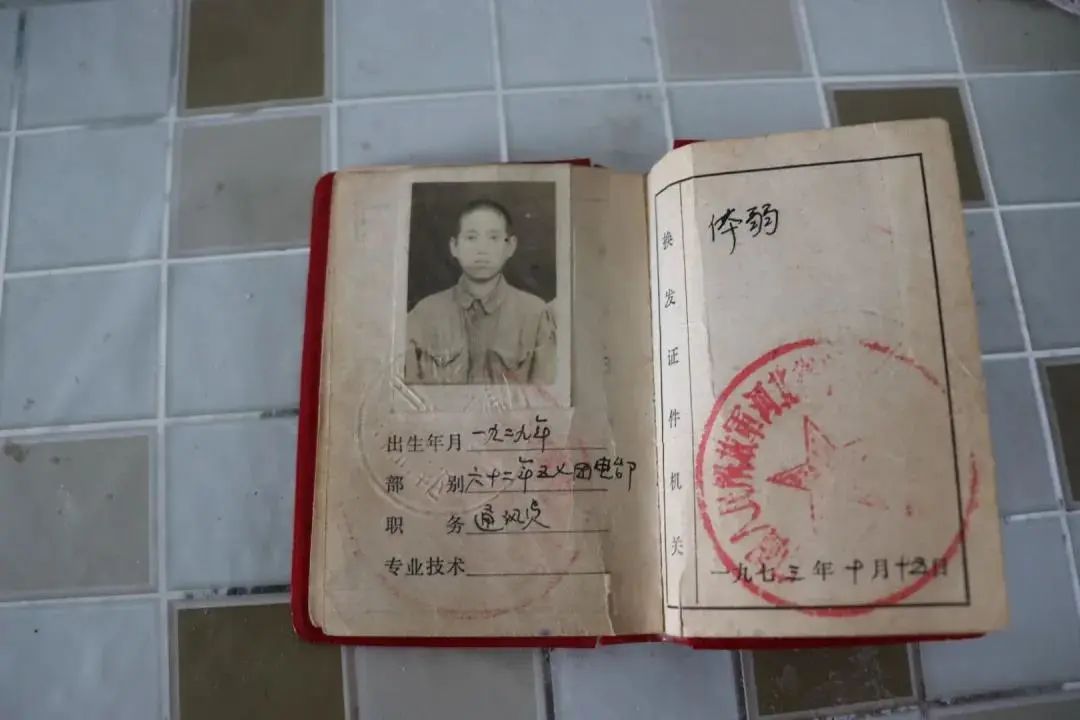 出生年月 一九二九年
部别 六十二军五七团电部
职务 通讯员
专业技术
换发证件机关
体弱
人民解放军河北
一九七三年十月十三日